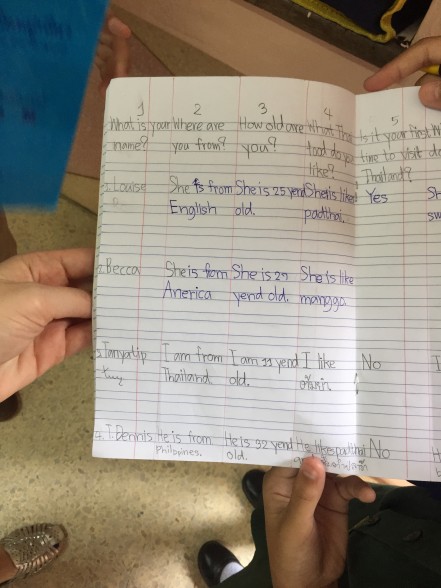 1 2 3 4 5
What is your Where are How old are What Thai Is it your first
name? you from? you? food do you time to visit
like? Thailand?
1. Louise She is from She is 25 yend She is like Yes
English old. padthai.
2. Becca She is from She is 27 She is like
Anerica yend old. manggo
3. Tanyatip I am from I am 11 yend I like No
Thailand. old.
4. T. Dennis He is from He is 32 yend He likes No
Philppines. old.